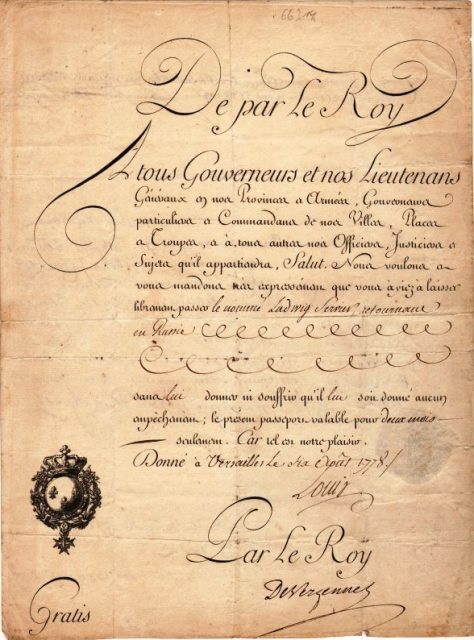 6621K
De par Le Roy
A tous Gouverneurs et nos Lieutenans
Généraux en nos Provinces et Armées, Gouverneurs
particuliers et Commandans de nos Villes, Places
et Troupes, et à tous autres nos Officiers, Justiciers et
Sujets qu'il appartiendra, Salut. Nous voulons et
vous mandons expressément que vous ayiez à laisser
librement passer le nommé Ludwig retournant
en Russie
sans lui donner ni souffrir qu'il lui soit donné aucun
empêchement; le présent passeport valable pour deux mois
seulement. Car tel est notre plaisir.
Donné à Versailles Le six Août 1778
Louis
Par Le Roy
De Vergennes
Gratis